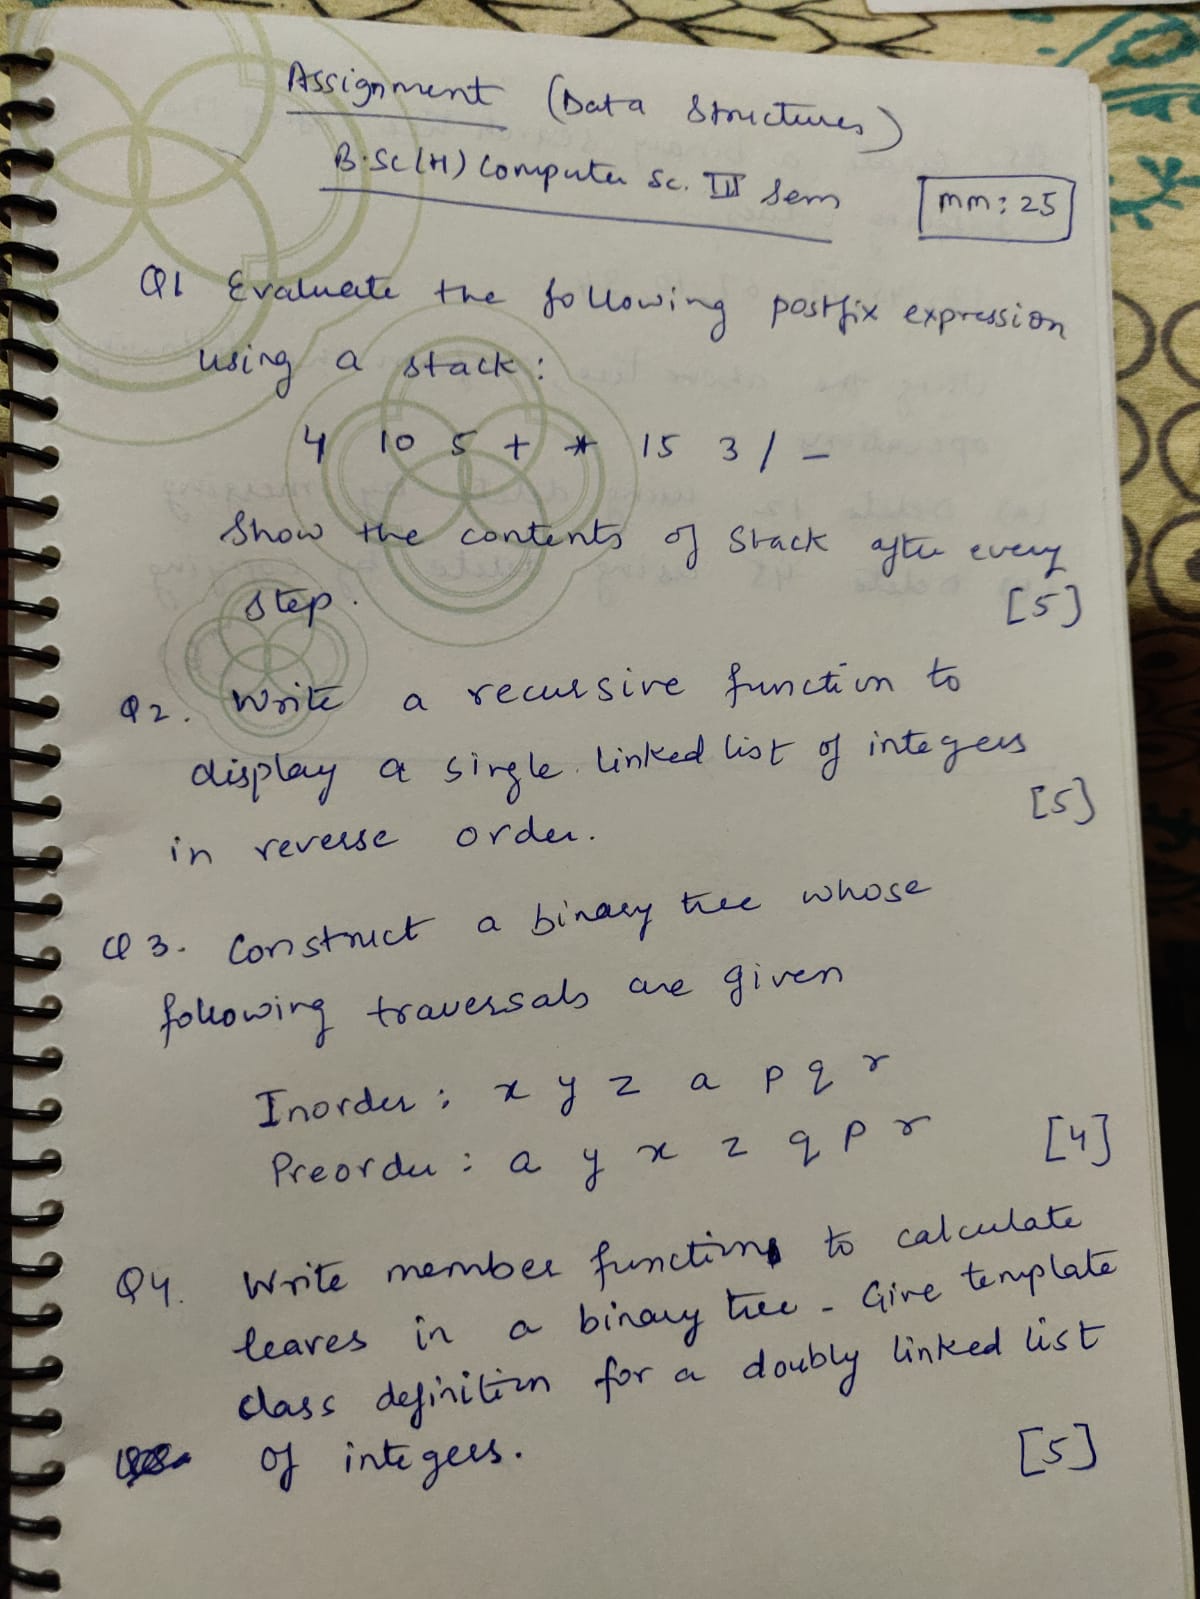 Assignment (Data Structures)
B.Sc(H) Computer Sc. III Sem
MM: 25
Q1 Evaluate the following postfix expression
using a stack:
4 10 5 + * 15 3 / -
Show the contents of Stack after every
step.
[5]
Q2. Write a recursive function to
display a single linked list of integers
[5]
in reverse order.
Q3. Construct a binary tree whose
following traversals are given
Inorder: x y z a p q r
Preorder: a y x z q p r [4]
Q4. Write member functions to calculate
leaves in a binary tree - Give template
class definition for a doubly linked list
of integers. [5]